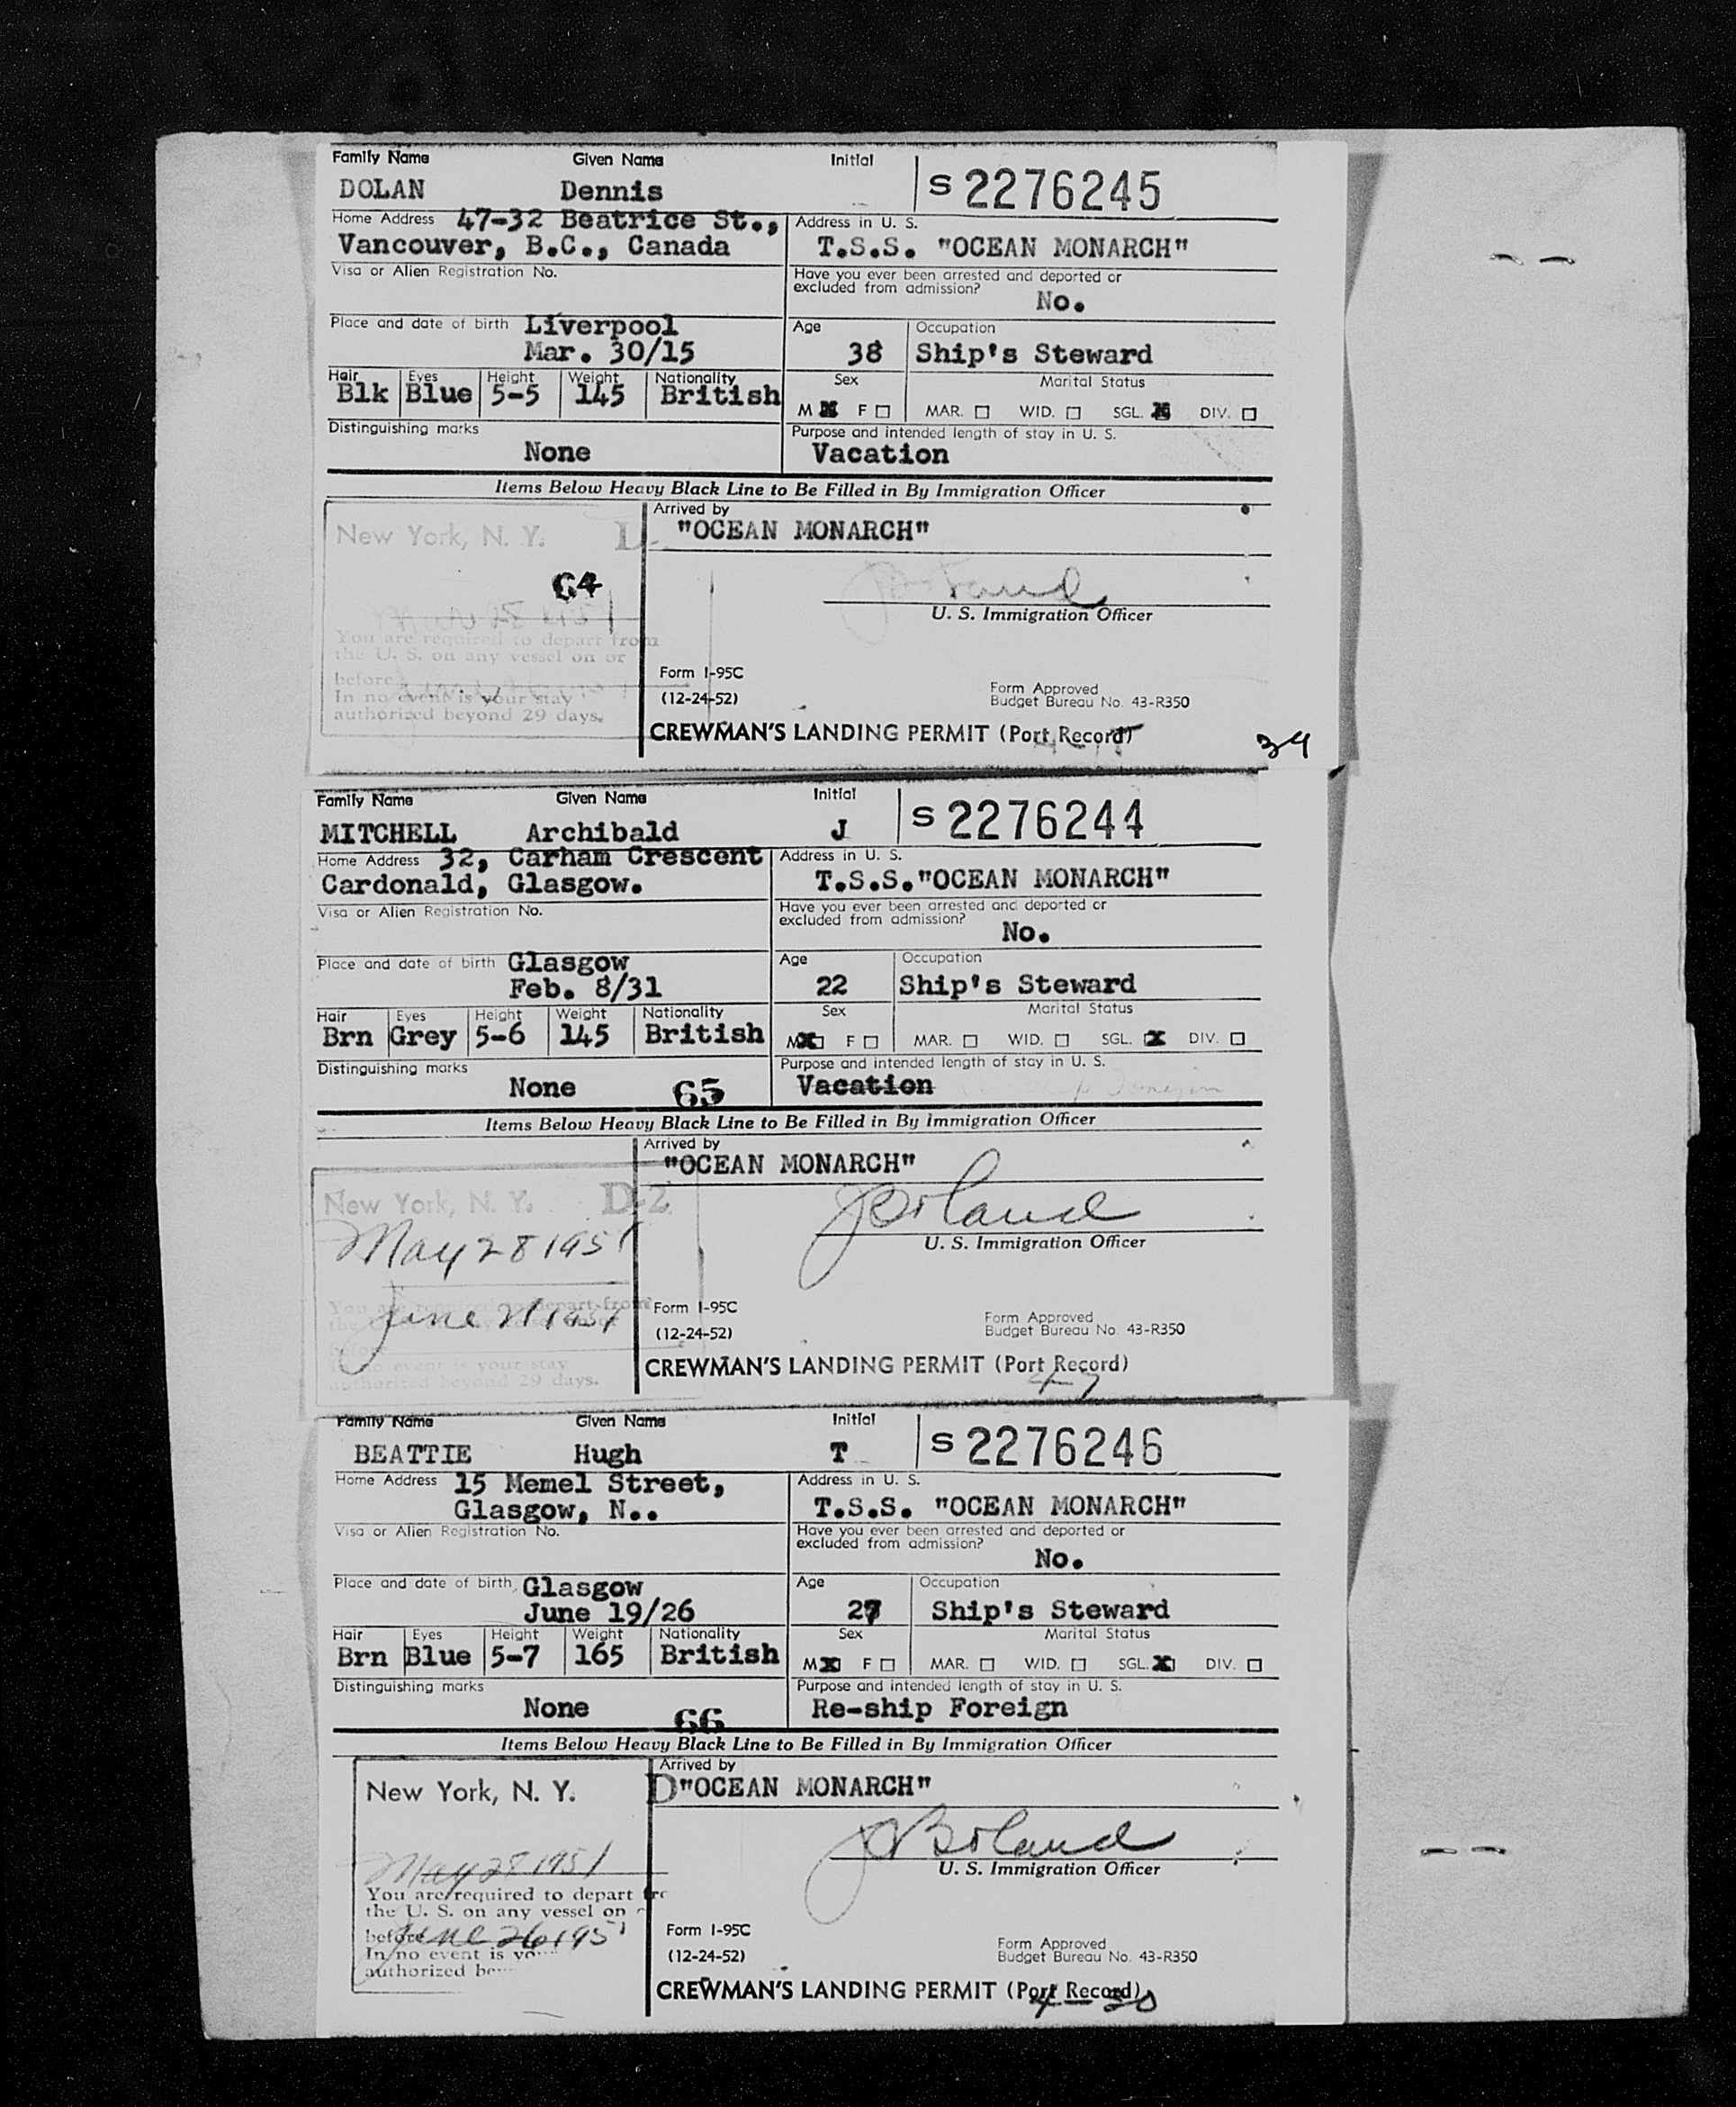 Family Name Given Name Initial
DOLAN Dennis S 2276245
Home Address 47-32 Beatrice St., Address in U. S.
Vancouver, B.C., Canada T.S.S. "OCEAN MONARCH"
Visa or Alien Registration No. Have you ever been arrested and deported or
excluded from admission?
No.
Place and date of birth Liverpool Age Occupation
Mar. 30/15 38 Ship's Steward
Hair Eyes Height Weight Nationality Sex Marital Status
Blk Blue 5-5 145 British M F MAR. WID. SGL. DIV.
Distinguishing marks Purpose and intended length of stay in U. S.
None Vacation
Items Below Heavy Black Line to Be Filled in By Immigration Officer
Arrived by
New York, N. Y. "OCEAN MONARCH"
64
U. S. Immigration Officer
You are required to depart from
the U. S. on any vessel on or
before
In no event is your stay
authorized beyond 29 days.
Form I-95C
(12-24-52)
Form Approved
Budget Bureau No. 43-R350
CREWMAN'S LANDING PERMIT (Port Record)
34
Family Name Given Name Initial
MITCHELL Archibald J S 2276244
Home Address 32, Carham Crescent Address in U. S.
Cardonald, Glasgow. T.S.S."OCEAN MONARCH"
Visa or Alien Registration No. Have you ever been arrested and deported or
excluded from admission?
No.
Place and date of birth Glasgow Age Occupation
Feb. 8/31 22 Ship's Steward
Hair Eyes Height Weight Nationality Sex Marital Status
Brn Grey 5-6 145 British M F MAR. WID. SGL. DIV.
Distinguishing marks Purpose and intended length of stay in U. S.
None 65 Vacation
Items Below Heavy Black Line to Be Filled in By Immigration Officer
Arrived by
"OCEAN MONARCH"
New York, N. Y. D-2
May 28 195
U. S. Immigration Officer
You are required to depart from
June
In no event is your stay
authorized beyond 29 days.
Form I-95C
(12-24-52)
Form Approved
Budget Bureau No. 43-R350
CREWMAN'S LANDING PERMIT (Port Record)
4-7
Family Name Given Name Initial
BEATTIE Hugh T S 2276246
Home Address 15 Memel Street, Address in U. S.
Glasgow, N.. T.S.S. "OCEAN MONARCH"
Visa or Alien Registration No. Have you ever been arrested and deported or
excluded from admission?
No.
Place and date of birth Glasgow Age Occupation
June 19/26 27 Ship's Steward
Hair Eyes Height Weight Nationality Sex Marital Status
Brn Blue 5-7 165 British M F MAR. WID. SGL. DIV.
Distinguishing marks Purpose and intended length of stay in U. S.
None 66 Re-ship Foreign
Items Below Heavy Black Line to Be Filled in By Immigration Officer
Arrived by
New York, N. Y. D "OCEAN MONARCH"
May 28 1951
JBoland
U. S. Immigration Officer
You are required to depart fro
the U. S. on any vessel on
before June 26 195
In no event is
authorized
Form I-95C
(12-24-52)
Form Approved
Budget Bureau No. 43-R350
CREWMAN'S LANDING PERMIT (Port Record)
4-30